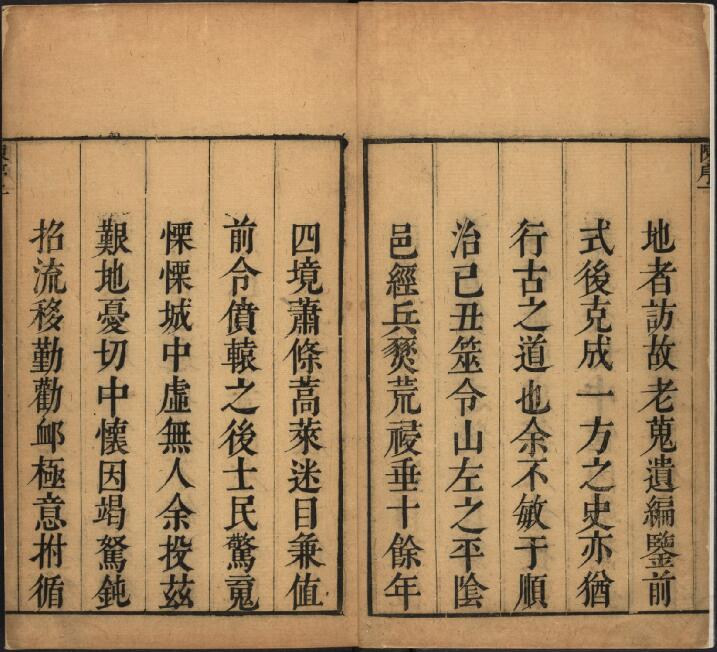 地者訪故老蒐遺編鑒前
式後克成一方之史亦猶
行古之道也余不敏于順
治己丑筮令山左之平陰
邑經兵燹荒祲垂十餘年
四境蕭條蒿萊迷目兼值
前令僨轅之後士民驚竄
慄慄城中虛無人余投茲
艱地憂切中懷因竭駑鈍
招流移勤勸䘏極意拊循